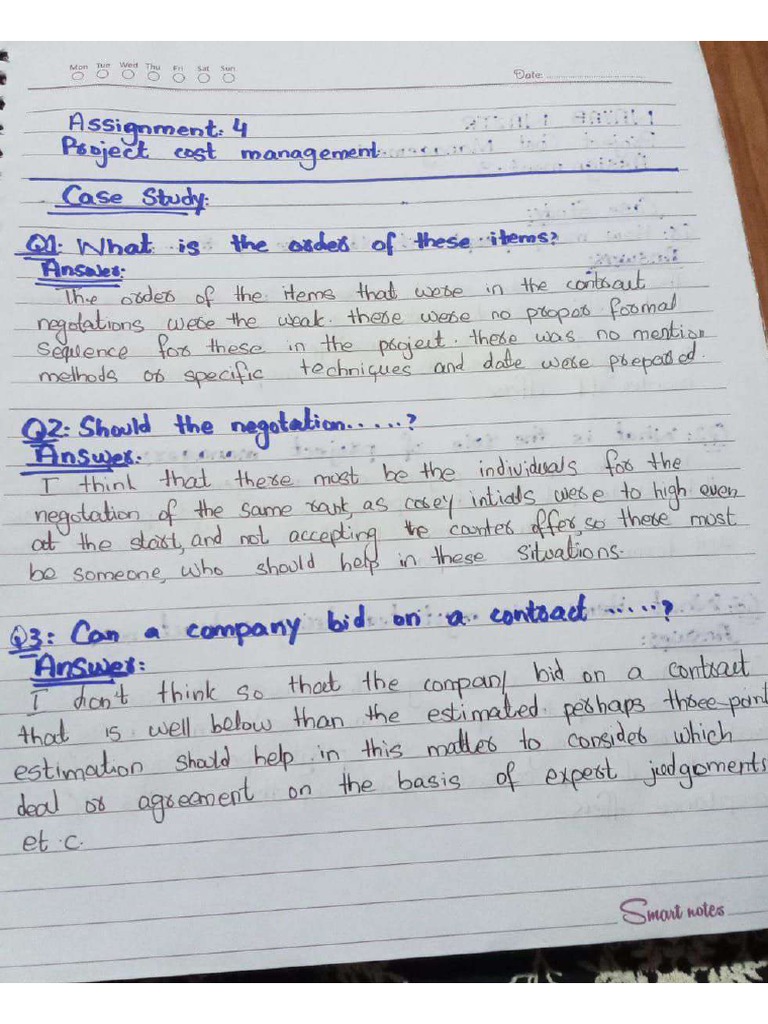 Mon Tue Wed Thu Fri Sat Sun
Date:
Assignment: 4
Project cost management
Case Study:
Q1: What is the order of these items?
Answer:
The order of the items that were in the contract
negotations were the weak. there were no propor formal
sequence for these in the project. there was no mention
methods or specific techniques and date were prepared.
Q2: Should the negotation......?
Answer:
I think that there most be the individuals for the
negotation of the same rank, as corey intials were to high even
at the start, and not accepting the counter offer, so there most
be someone, who should help in these situations.
Q3: Can a company bid on a contract .....?
Answer:
I don't think so that the company bid on a contract
that is well below than the estimated perhaps three-point
estimation should help in this matter to consider which
deal or agreement on the basis of expert judgoments
et.c.
Smart notes